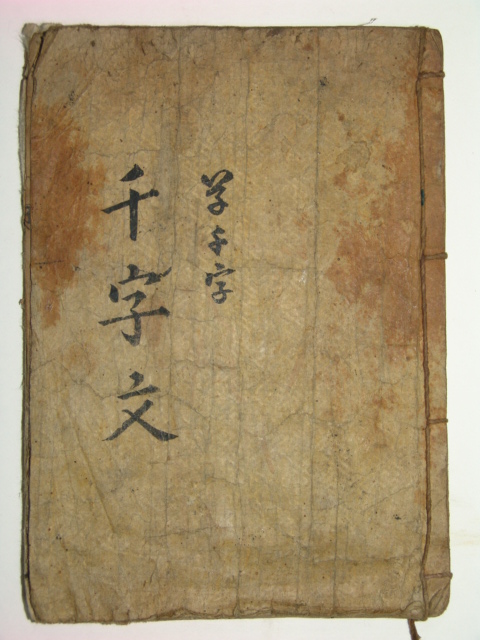 草千字
千字文